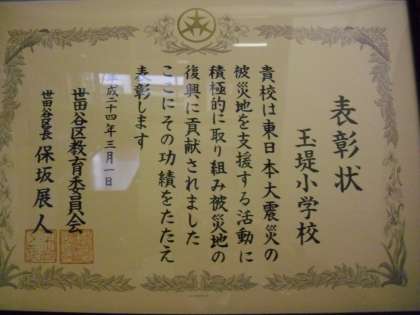 表彰状
玉堤小学校
貴校は東日本大震災の
被災地を支援する活動に
積極的に取り組み被災地の
復興に貢献されました
ここにその功績をたたえ
表彰します
平成二十四年三月一日
世田谷区教育委員会
世田谷区長 保坂展人